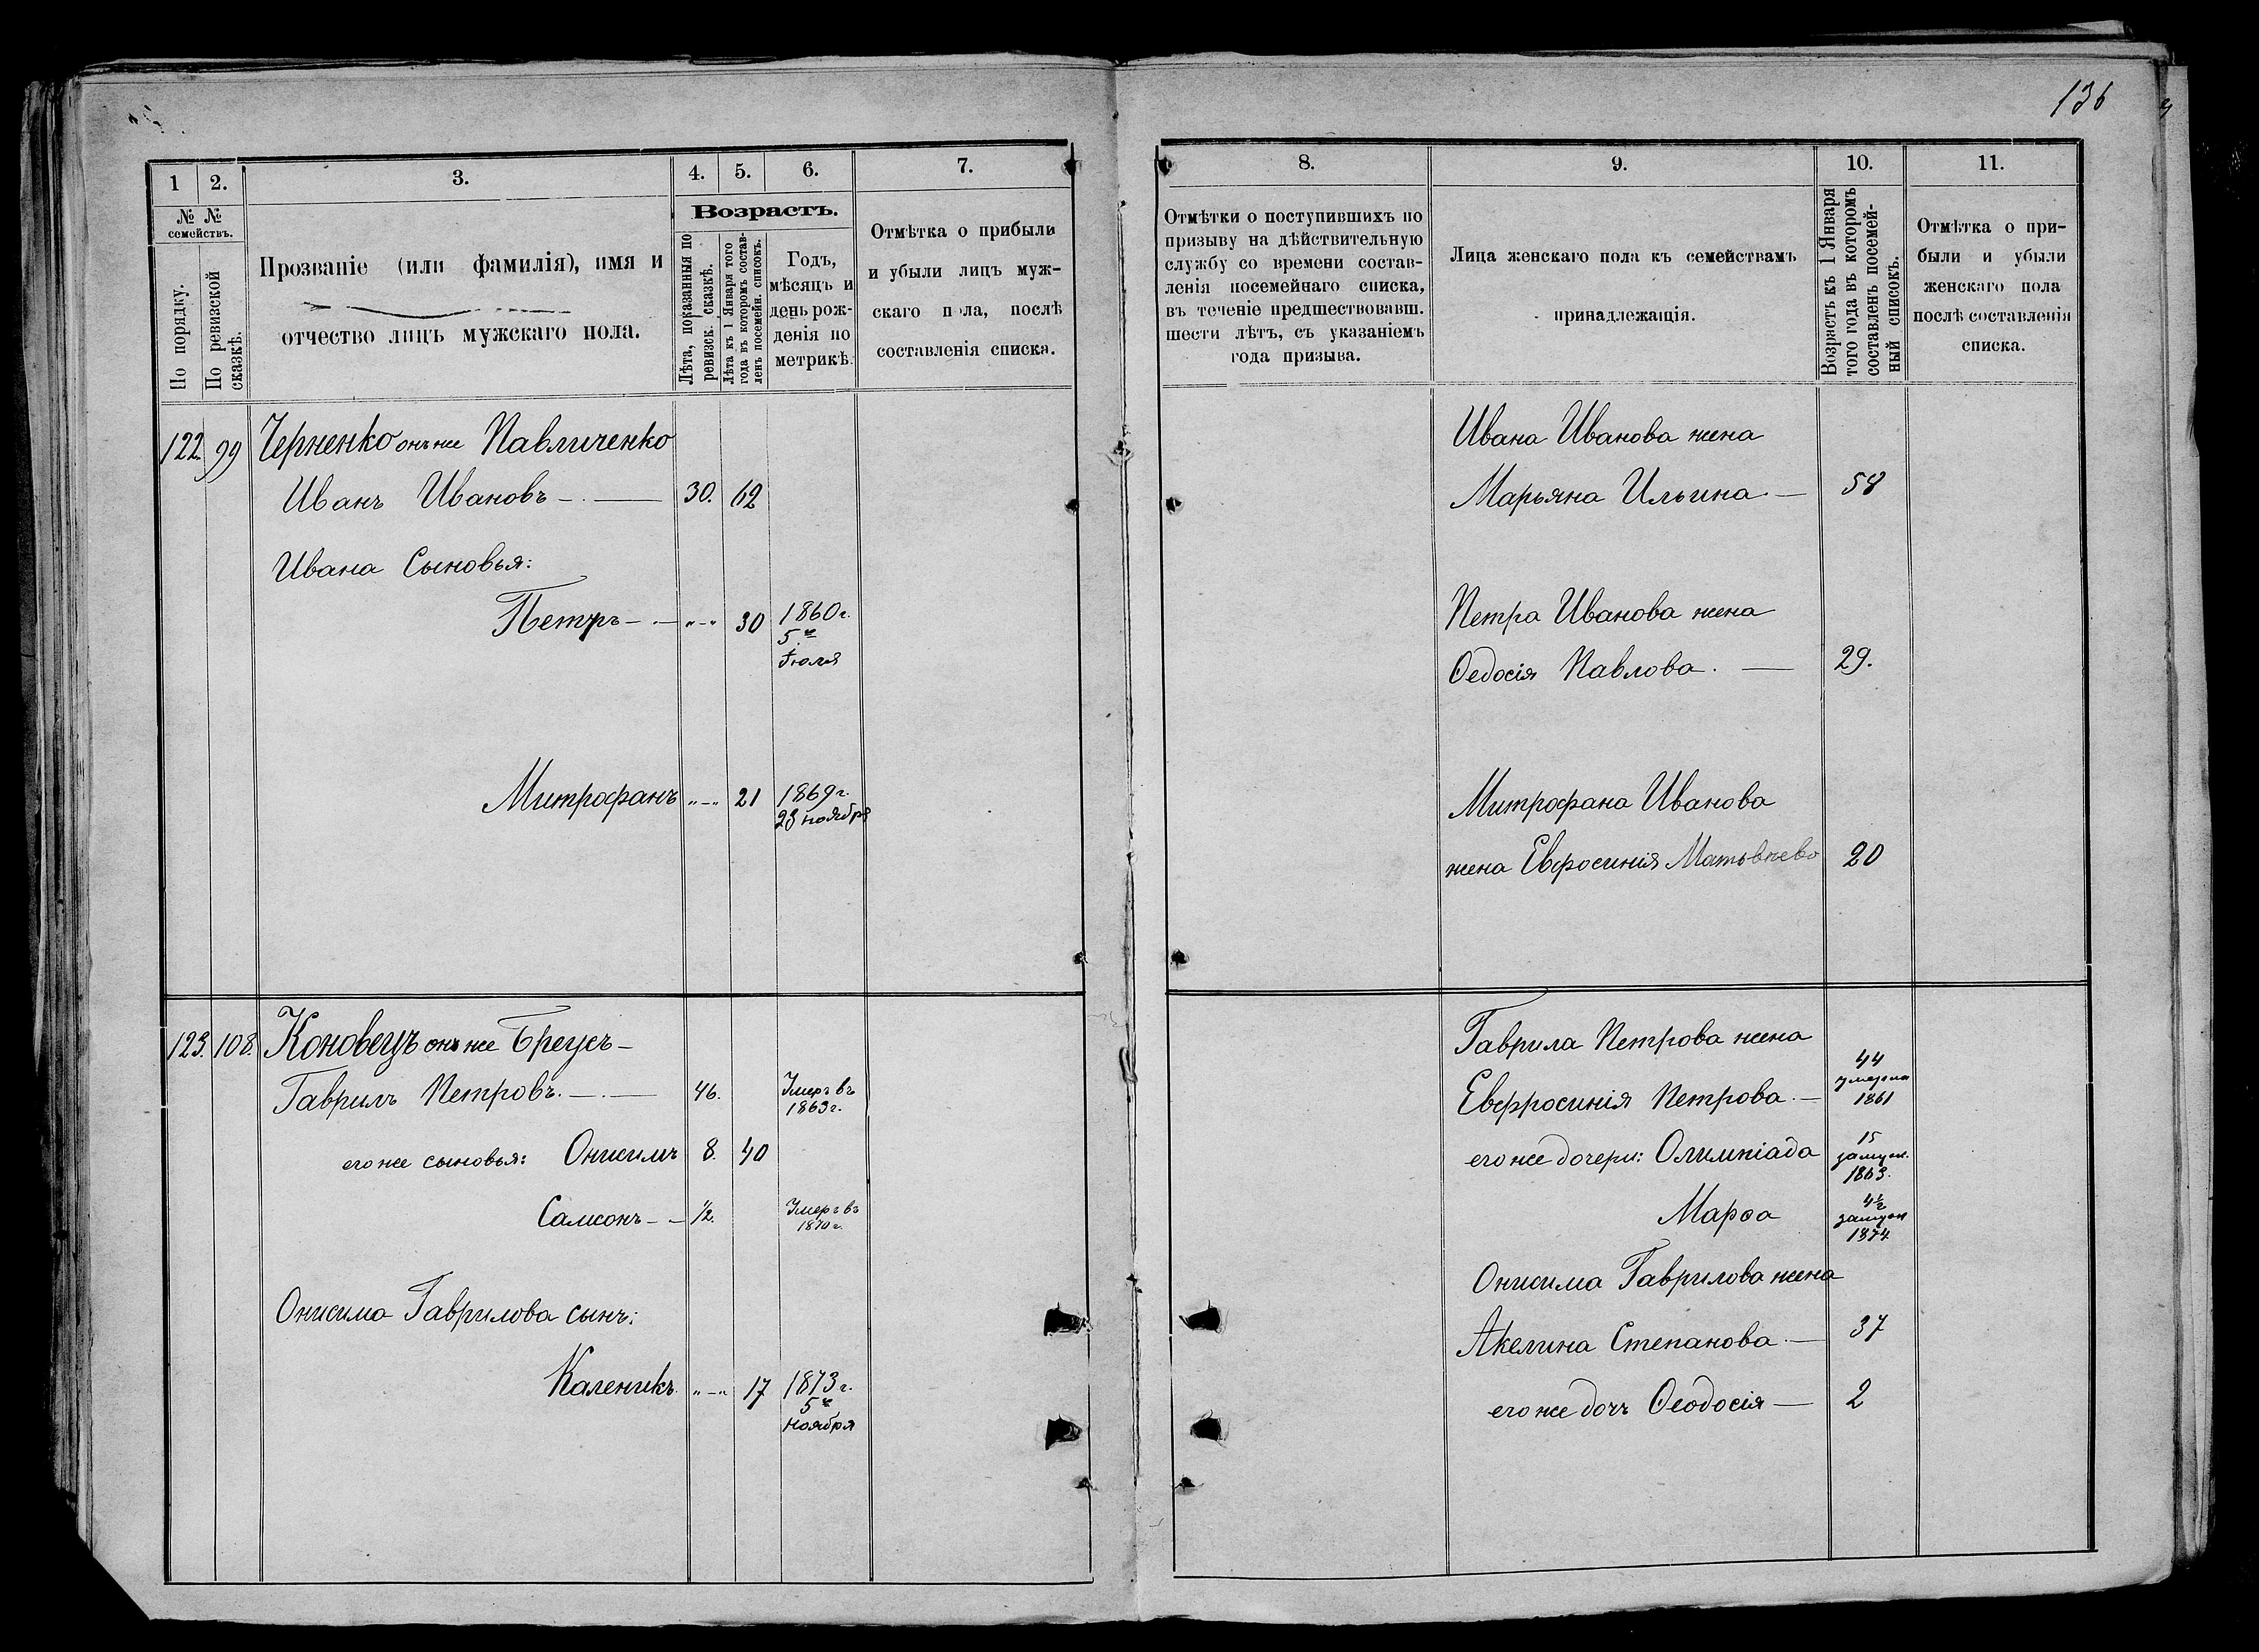 136
1
2.
3.
4.
5.
6.
7.
№ №
семействъ.
По порядку.
По ревизской
сказкѣ.
Прозваніе (или фамилія), имя и
отчество лицъ мужскаго пола.
Возрастъ.
Лѣта, показанныя по
ревизск. сказкѣ.
Лѣта къ 1 Января того
года въ которомъ состав-
ленъ посемейн. списокъ.
Годъ,
мѣсяцъ и
день рож-
денія по
метрикѣ.
Отмѣтка о прибыли
и убыли лицъ муж-
скаго пола, послѣ
составленія списка.
122. 99 Черненко онъ же Павличенко
Иванъ Ивановъ 30. 62
Ивана Сыновья:
Петръ „-„ 30 1860 г.
5го
Іюля
Митрофанъ „-„ 21 1869 г.
23 ноября
123. 108. Коновецъ онъ же Бреусъ
Гаврилъ Петровъ. 46. Умеръ въ
1863 г.
его же сыновья: Онисимъ 8. 40
Самсонъ ½. Умеръ въ
1870 г.
Онисима Гаврилова сынъ:
Каленикъ. „-„ 17 1873 г.
5го
ноября
8.
9.
10.
11.
Отмѣтки о поступившихъ по
призыву на дѣйствительную
службу со времени состав-
ленія посемейнаго списка,
въ теченіе предшествовавш.
шести лѣтъ, съ указаніемъ
года призыва.
Лица женскаго пола къ семействамъ
принадлежащія.
Возрастъ къ 1 Января
того года въ которомъ
составленъ посемей-
ный списокъ.
Отмѣтка о при-
были и убыли
женскаго пола
послѣ составленія
списка.
Ивана Иванова жена
Марьяна Ильина. 58
Петра Иванова жена
Ѳедосія Павлова. 29.
Митрофана Иванова
жена Евфросинія Матвѣева 20
Гаврила Петрова жена
Евфросинія Петрова. 44
умерла
1861
его же дочери: Олимпіада 15
замуж.
1863.
Марѳа 4½
замуж
1874
Онисима Гаврилова жена
Акелина Степанова. 37
его же дочь Ѳеодосія 2